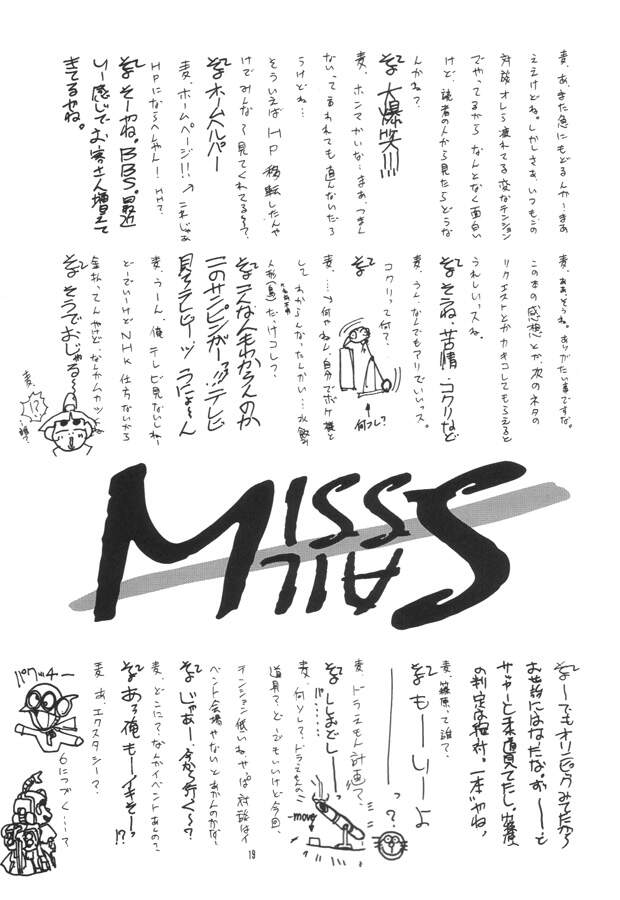 麦、あ、また急にもどるんかーまあ
ええけどね。しかしさぁ、いつもこの
対談オレら疲れてる変なテンション
でやってるから なんとなく面白い
けど、読者の人から見たらどうな
んかね？
そ、大爆笑!!!
麦、ホンマかいな…まあ、つまん
ないってるわれても直んないだろ
らけどね…
そういえばHP移転したんや
けどみんな〜見てくれてる〜？
そ、ホームヘルパー
麦、ホームページ!!→これじゃあ
HPにならへんやん！HH？
そ、そーやね。BBS。最近
いー感じでお客さん増えて
きてるやね。
麦、ああ、そうね。ありがたい事ですな。
この本の感想とか、次のネタの
リクエストとかカキコしてもらえると
うれしいっスね。
そ、そうね、苦情・コクリなど
麦、うん、なんでもアリでいいっス。
コクリって何？
そ
何コレ？
麦、…何やねん、自分でボケ機と
してわからんなったんかい…水飲み
人形(鳥)だっけコレ？
そ、こんな人もわからんのか
このサンピンがー!!テレビ
見てテレビーッ うにょ〜ん
麦、うーん、俺テレビ見ないしねー
どーでいいけどNHK仕方ないから
金払ってんやけどなんかムカッとよね
そ、そうでおじゃる〜
麦、
!?
MISS
SAIL
そ、〜でもオリンピックみてたから
お世話にはなたな。お〜〜っと
サッカーと柔道見てたし。
の判定は絶対。一本やね。
麦、篠原って誰？
そ、もーしーよ
――っ？
麦、ドラえもん計画？
そ、ししおどしー
！！………
-move
麦、何ソレ？ドラえもんの
道具？どーでもいいけど今回、
テンション低いねやっぱ対談はイ
ベント会場やないとあかんのかな、
そ、じゃあー今から行く〜？
麦、どこに？なんかイベントあんの？
そ、ある俺もーイキそー!?
麦、あ、エクスタシー？、
6につづく…て
パワッチー
19